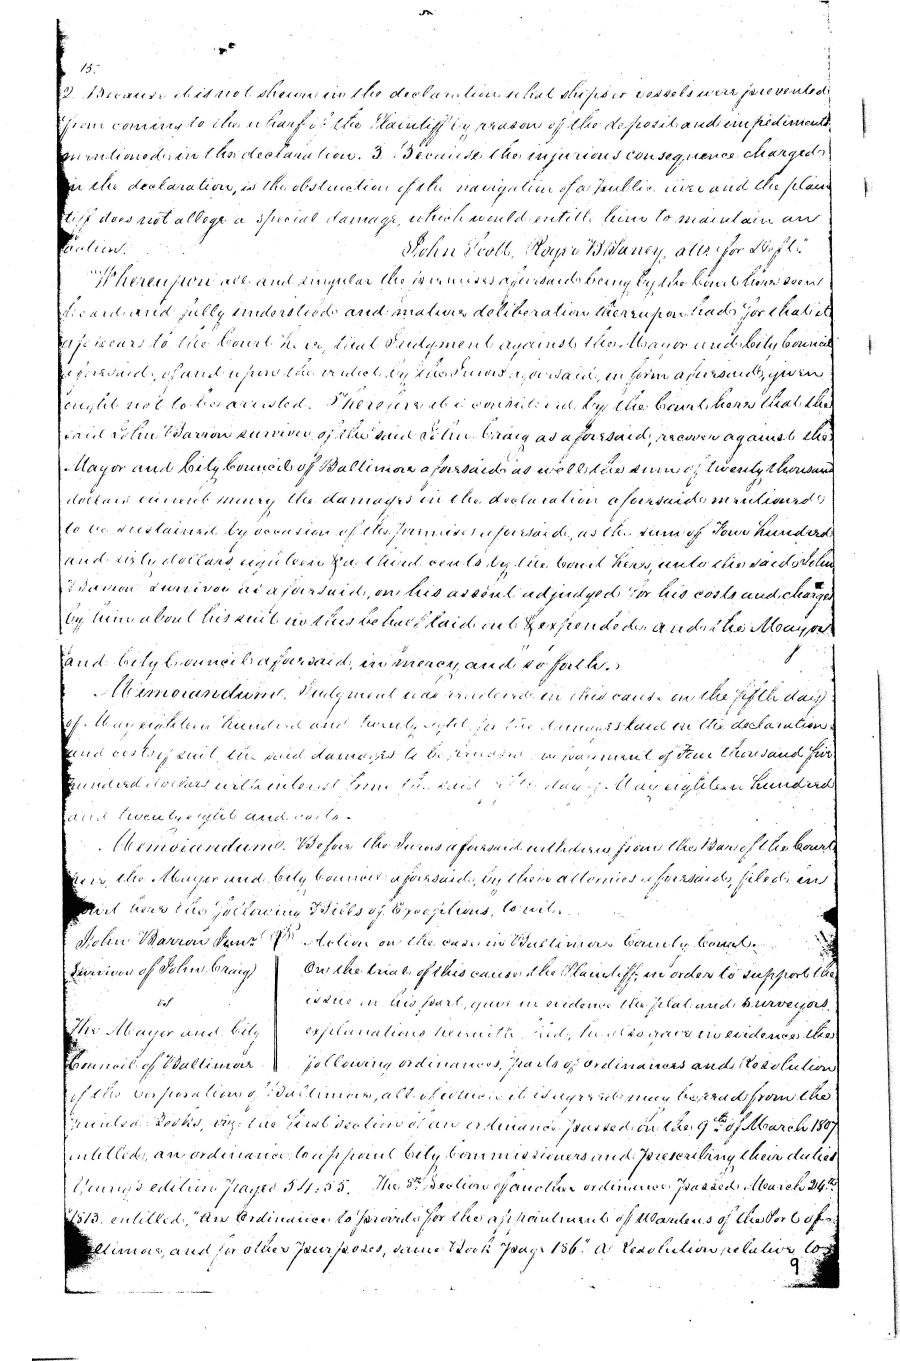 15.
2. Because it is not shewn in the declaration that ships or vessels were prevented
from coming to the wharf of the Plaintiff by reason of the deposit and impediments
mentioned in the declaration. 3. Because the injurious consequence charged
in the declaration, is the obstruction of the navigation of a public river and the plain
tiff does not allege a special damage, which would entitle him to maintain an
action. John Scott, Roger B Taney, atts. for Defts.
Whereupon all and singular the premises aforesaid being by the Court here seen
heard and fully understood and mature deliberation thereupon had, for that it
appears to the Court here, that Judgment against the Mayor and City Council
aforesaid, of and upon the verdict by the Jurors aforesaid, in form aforesaid, given
ought not to be arrested. Therefore it is considered by the Court here that the
said John Barron survivor of the said John Craig as aforesaid, recover against the
Mayor and City Council of Baltimore aforesaid as well the sum of twenty thousand
dollars current money the damages in the declaration aforesaid mentioned
to be sustained by occasion of the premises aforesaid, as the sum of Four hundred
and sixty dollars, eighteen & a third cents by the Court here, unto the said John
Barron survivor as aforesaid, on his assent adjudged for his costs and charges
by him about his suit in this behalf laid out & expended and the Mayor
and City Council aforesaid, in mercy, and so forth.
Memorandum. Judgment was rendered in this cause on the fifth day
of May eighteen hundred and twenty eight for the damages laid in the declaration
and costs of suit, the said damages to be released on payment of Four thousand five
hundred dollars with interest from the said fifth day of May eighteen hundred
and twenty eight and costs.
Memorandum. Before the Jurors aforesaid withdrew from the Bar of the Court
here, the Mayor and City Council aforesaid, by their attornies aforesaid, filed in
Court here the following Bills of Exceptions, to wit.
John Barron Junr Action on the case in Baltimore County Court.
Survivor of John Craig On the trial of this cause the Plaintiff, in order to support the
vs issue on his part, gave in evidence the plat and surveyors
The Mayor and City explanations herewith filed, he also gave in evidence the
Council of Baltimore following ordinances, parts of ordinances and Resolution
of the Corporation of Baltimore, all of which it is agreed may be read from the
printed Books, viz: the first section of an ordinance passed on the 9th of March 1807
entitled, an ordinance to appoint City Commissioners and prescribing their duties
edition pages 54, 55. The 5th Section of another ordinance passed March 24th
1813. entitled, "An Ordinance to provide for the appointment of Wardens of the Port of
Baltimore, and for other purposes, same Book page 186." A Resolution relative to
9